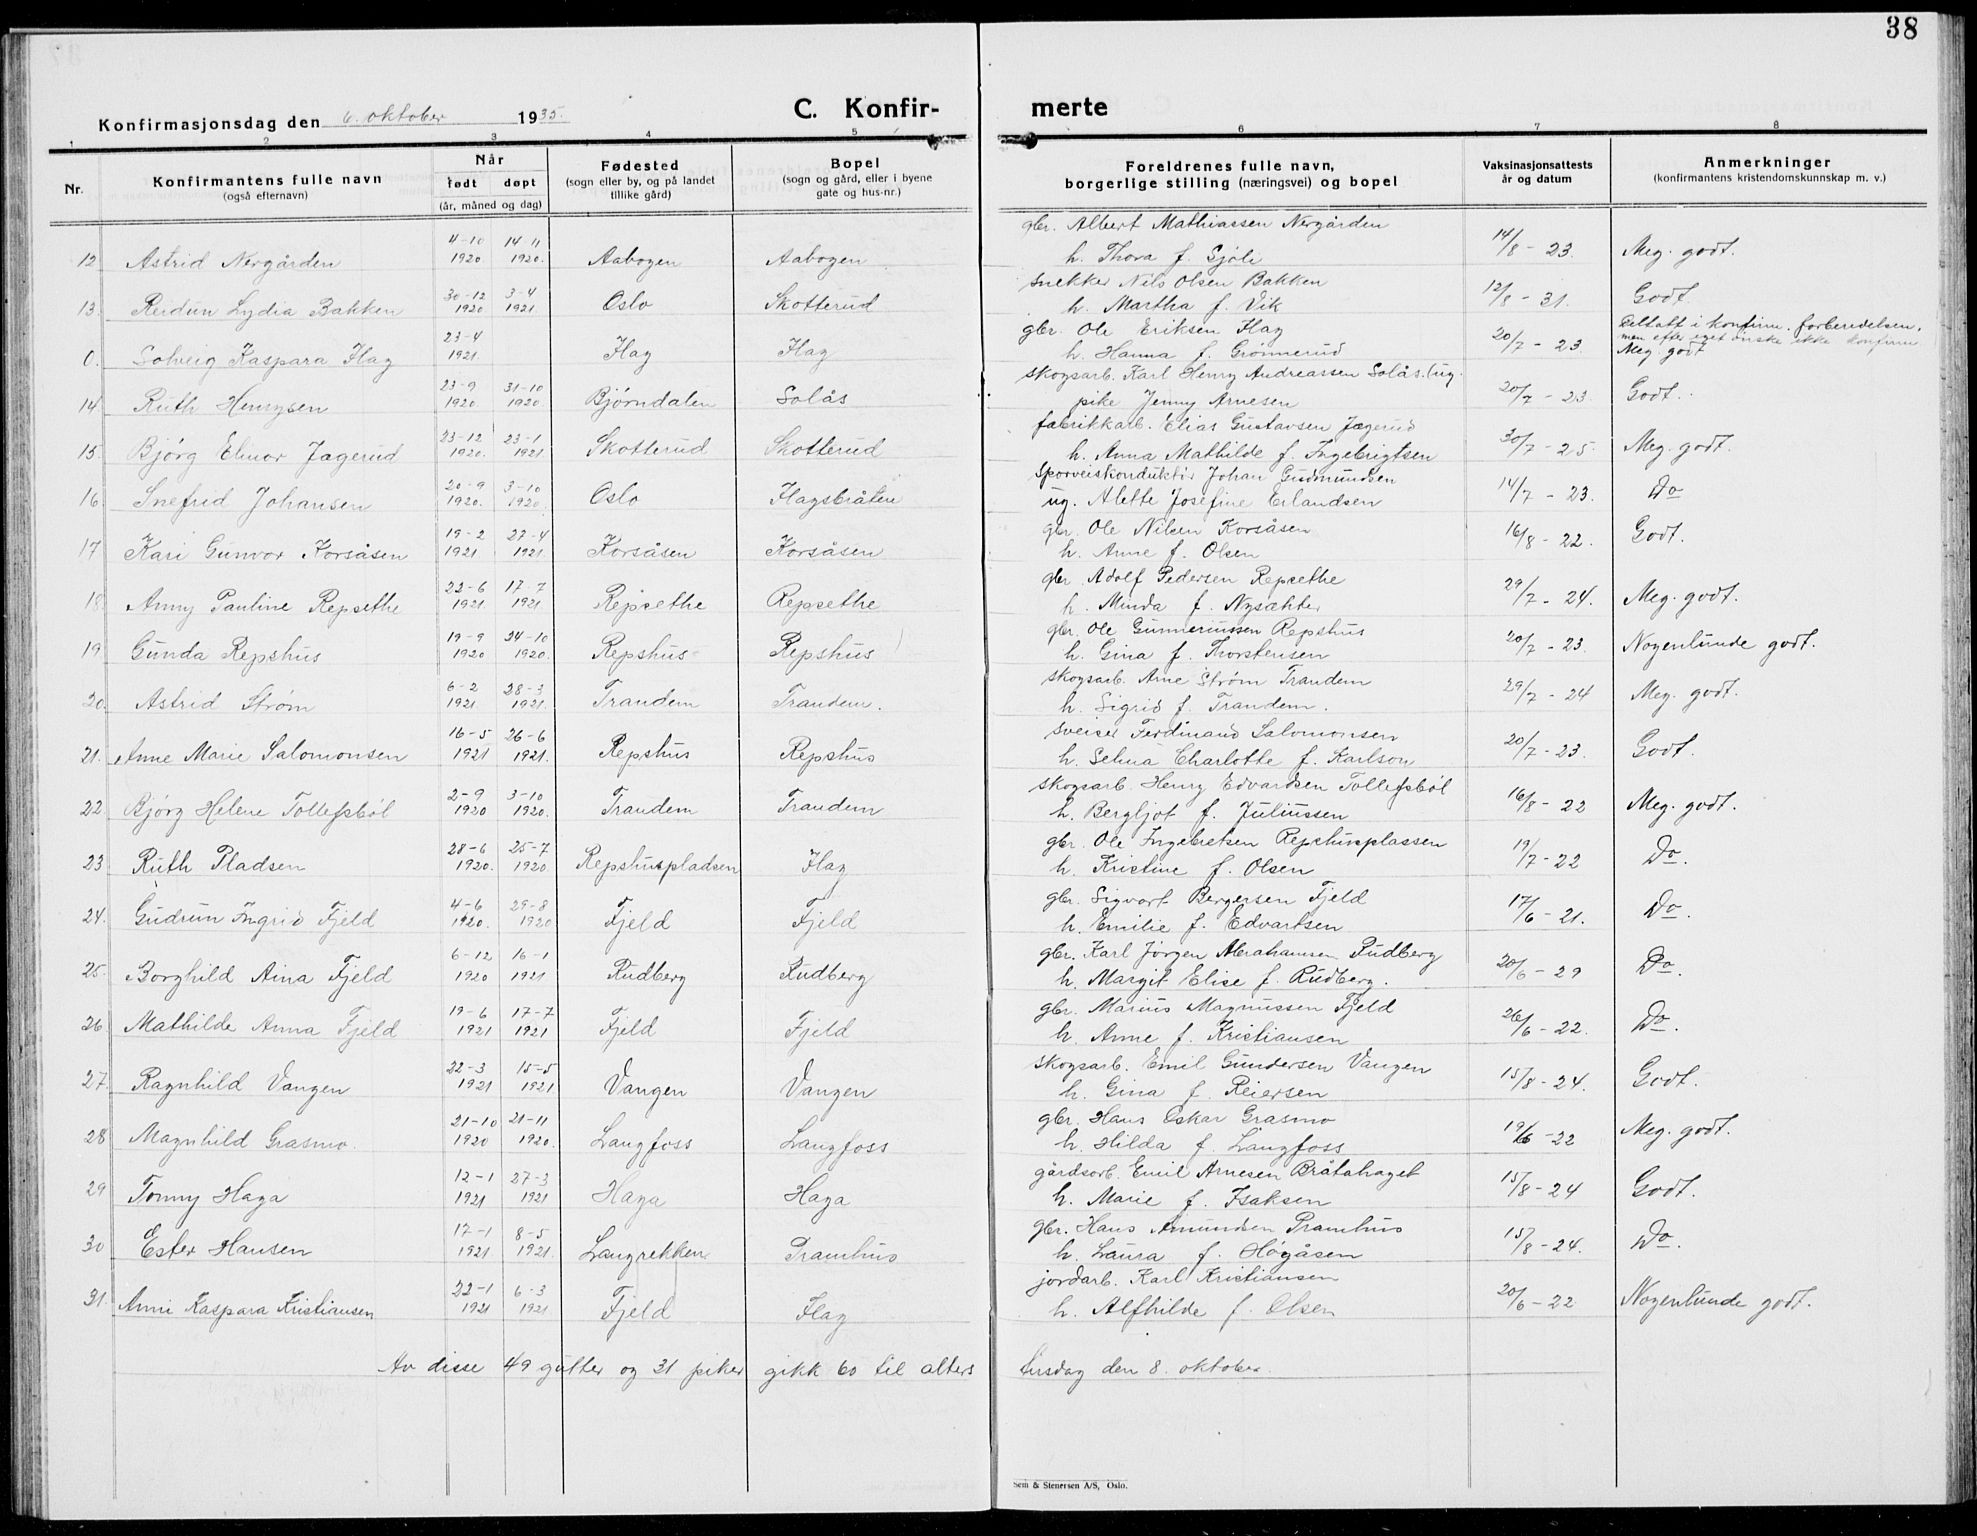 38
Konfirmasjonsdag den 6. oktober 1935.
C. Konfir-
merte
1 2 3 4 5 6 7 8
Nr. Konfirmantens fulle navn (også efternavn) Når født døpt (år, måned og dag) Fødested (sogn eller by, og på landet tillike gård) Bopel (sogn og gård, eller i byene gate og hus-nr.) Foreldrenes fulle navn, borgerlige stilling (næringsvei) og bopel Vaksinasjonsattests år og datum Anmerkninger (konfirmantens kristendomskunnskap m. v.)
gbr. Albert Mathiassen Nergården
12 Astrid Nergården 4-10 1920 14-11 1920. Aabogen Aabogen h. Thora f. Sjøli 14/8 - 23. Meg. godt.
snekker Nils Olsen Bakken
13. Reidun Lydia Bakken 30-12 1920 3-4 1921 Oslo Skotterud h. Martha f. Vik 12/8 - 31. Godt.
gbr. Ole Eriksen Flag
0. Solveig Kaspara Flag 23-4 1921. Flag Flag h. Hanna f. Grønnerud 20/7 - 23. Deltatt i konfirm. forberedelsen,
men efter eget ønske ikke konfirm.
Meg godt
skogsarb. Karl Henry Andreassen Solås. (ug.
14. Ruth Henrysen 23-9 1920 31-10 1920 Bjørndalen Solås pike Jenny Arnesen 20/7 - 23 Godt.
fabrikkarb. Elias Gustavsen Jægerud
15. Bjørg Elinor Jagerud 23-12 1920. 23-1 1921 Skotterud Skotterud h. Anna Mathilde f. Ingebrigtsen 30/7 - 25. Meg. godt.
Sporveiskonduktør Johan Gudmundsen
16 Snefrid Johansen 20-9 1920. 3-10 1920. Oslo Flagsbråten ug. Alette Josefine Erlandsen 14/7 - 23. Do
gbr. Ole Nilsen Korsåsen
17 Kari Gunvor Korsåsen 19-2 1921 27-4 1921 Korsåsen Korsåsen h. Anne f. Olsen 16/8 - 22. Godt.
gbr. Adolf Pedersen Repsethe
18. Anny Pauline Repsethe 22-6 1921 17-7 1921 Repsethe Repsethe h. Minda f. Nysæhter 29/7 - 24. Meg. godt.
gbr. Ole Gunneriussen Repshus
19 Gunda Repshus 19-9 1920 24-10 1920. Repshus Repshus h. Gina f. Thorstensen 20/7 - 23. Nogenlunde godt.
skogsarb. Arne Strøm Trandem
20. Astrid Strøm 6-2 1921. 28-3 1921. Trandem Trandem. h. Sigrid f. Trandem. 29/7 - 24 Meg. godt.
sveiser Ferdinand Salomonsen
21. Anne Marie Salomonsen 16-5 1921 26-6 1921. Repshus Repshus h. Selma Charlotte f. Karlson 20/7 - 23. Godt.
skogsarb. Henry Edvardsen Tollefsbøl
22. Bjørg Helene Tollefsbøl 2-9 1920 3-10 1920. Trandem Trandem h. Bergljot f. Juliussen 16/8 - 22 Meg. godt.
gbr. Ole Ingebretsen Repshusplassen
23 Ruth Pladsen 28-6 1920. 25-7 1920 Repshuspladsen Flag h. Kristine f. Olsen 19/7 - 22 Do.
gbr. Sigvart Bergersen Fjeld
24. Gudrun Ingrid Fjeld 4-6 1920. 29-8 1920 Fjeld Fjeld h. Emilie f. Edvartsen 17/6 - 21. Do.
gbr. Karl Jørgen Abrahamsen Rudberg
25. Borghild Aina Fjeld 6-12 1920 16-1 1921 Rudberg Rudberg h. Margit Elise f. Rudberg. 20/6 - 29 Do.
gbr. Marius Magnussen Fjeld
26 Mathilde Anna Fjeld 19-6 1921 17-7 1921 Fjeld Fjeld h. Anne f. Kristiansen 26/6 - 22. Do.
skogsarb. Emil Gundersen Vangen
27. Ragnhild Vangen 22-3 1921 15-5 1921 Vangen Vangen h. Gina f. Reiersen 15/8 - 24. Godt.
gbr. Hans Oskar Grasmo
28 Magnhild Grasmo. 21-10 1920 21-11 1920. Langfoss Langfoss h. Hilda f. Langfoss 19/6 - 22 Meg. godt.
gårdsarb. Emil Arnesen Bråtahaget
29 Tonny Haga 12-1 1921 27-3 1921 Haga Haga h. Marie f. Isaksen 15/8 - 24 Godt.
gbr. Hans Amundsen Pramhus
30 Ester Hansen 17-1 1921 8-5 1921. Langrekken Pramhus h. Laura f. Høgåsen 15/8 - 24. Do.
jordarb. Karl Kristiansen
31. Anni Kaspara Kristiansen 22-1 1921 6-3 1921 Fjeld Flag h. Alfhilde f. Olsen 20/6 - 22 Nogenlunde godt.
Av disse 49 gutter og 31 piker gikk 60 til alters tirsdag den 8. oktober.
Sem & Stenersen A/S, Oslo.